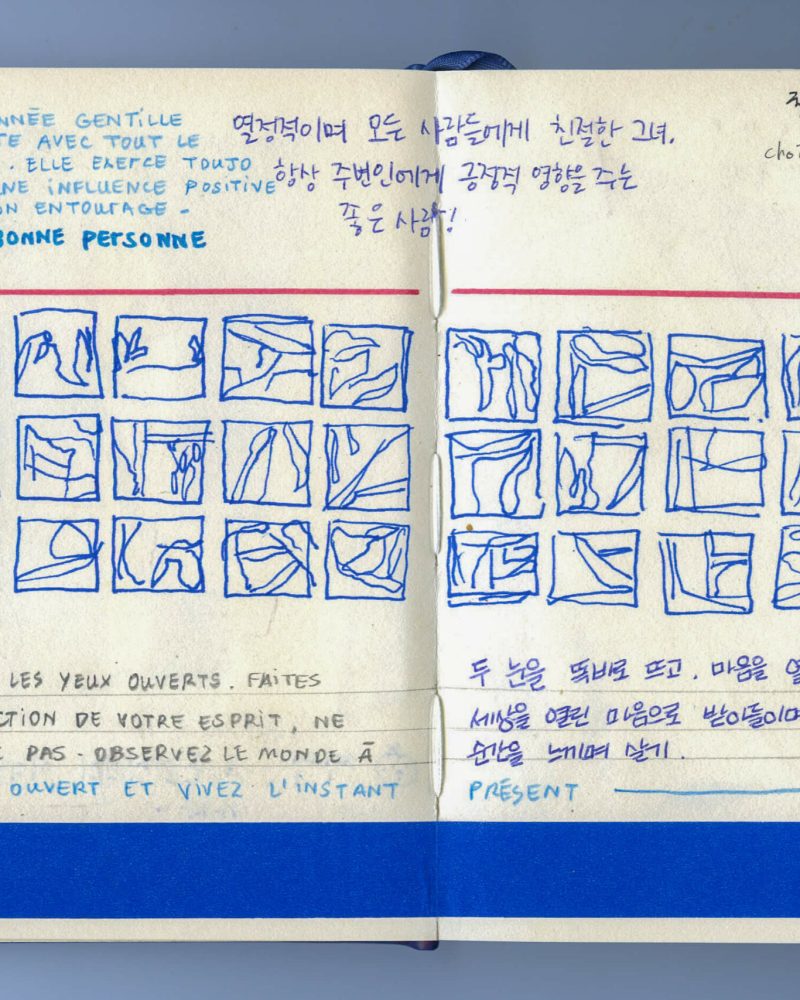 NNÉE GENTILLE
TE AVEC TOUT LE
. ELLE EXERCE TOUJO
NE INFLUENCE POSITIVE
ON ENTOURAGE -
BONNE PERSONNE
열정적이며 모든 사람들에게 친절한 그녀.
항상 주변인에게 긍정적 영향을 주는
좋은 사람!
choi
LES YEUX OUVERTS. FAITES
CTION DE VOTRE ESPRIT, NE
PAS - OBSERVEZ LE MONDE À
OUVERT ET VIVEZ L'INSTANT
두 눈을 똑바로 뜨고. 마음을 열
세상을 열린 마음으로 받아들이며
순간을 느끼며 살기.
PRÉSENT